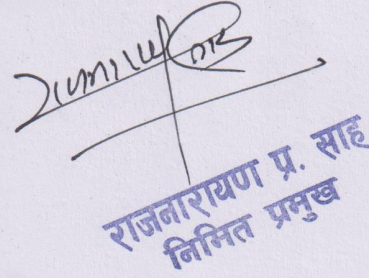 राजनारायण प्र. साह
निमित प्रमुख